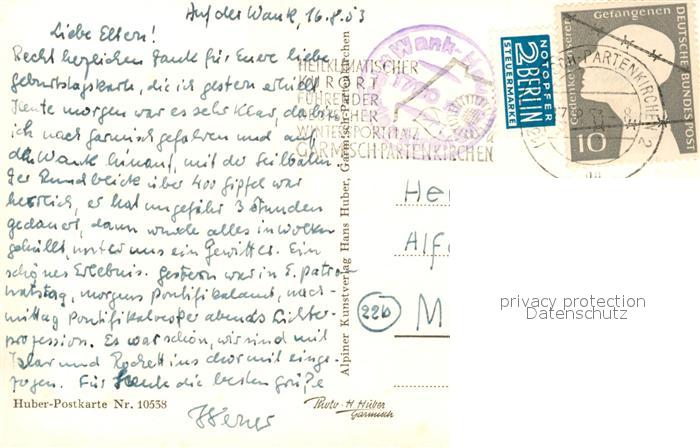 Auf der Wank, 16.8.53
Liebe Eltern!
Recht herzlichen Dank für Eure liebe
Geburtstagskarte, die ich gestern erhielt.
Heute morgen war es sehr klar, da bin
ich nach Garmisch gefahren und auf
den Wank hinauf, mit der Seilbahn.
Der Rundblick über 400 Gipfel war
herrlich, er hat ungefähr 3 Stunden
gedauert, dann wurde alles in Wolken
gehüllt, unter uns ein Gewitter. Ein
schönes Erlebnis. Gestern war in E. Patro-
natstag, morgens Pontifikalamt, nach-
mittag Pontifikalvesper abends Lichter-
prozession. Es war schön, wir sind mit
Talar und Rochett ins Chor mit einge-
zogen. Für heute die besten Grüße
Werner
Huber-Postkarte Nr. 10538
Alpiner Kunstverlag Hans Huber, Garmisch-Partenkirchen
Photo-H. Huber
Garmisch
HEILKLIMATISCHER
KURORT
FÜHRENDER
DEUTSCHER
WINTERSPORTPLATZ
GARMISCH-PARTENKIRCHEN
Wank-H
1780
NOTOPFER
2 BERLIN
STEUERMARKE
Gedenket unserer Gefangenen
DEUTSCHE BUNDESPOST
10
PARTENKIRCHEN 2
He
Alf
22b
M
privacy protection
Datenschutz